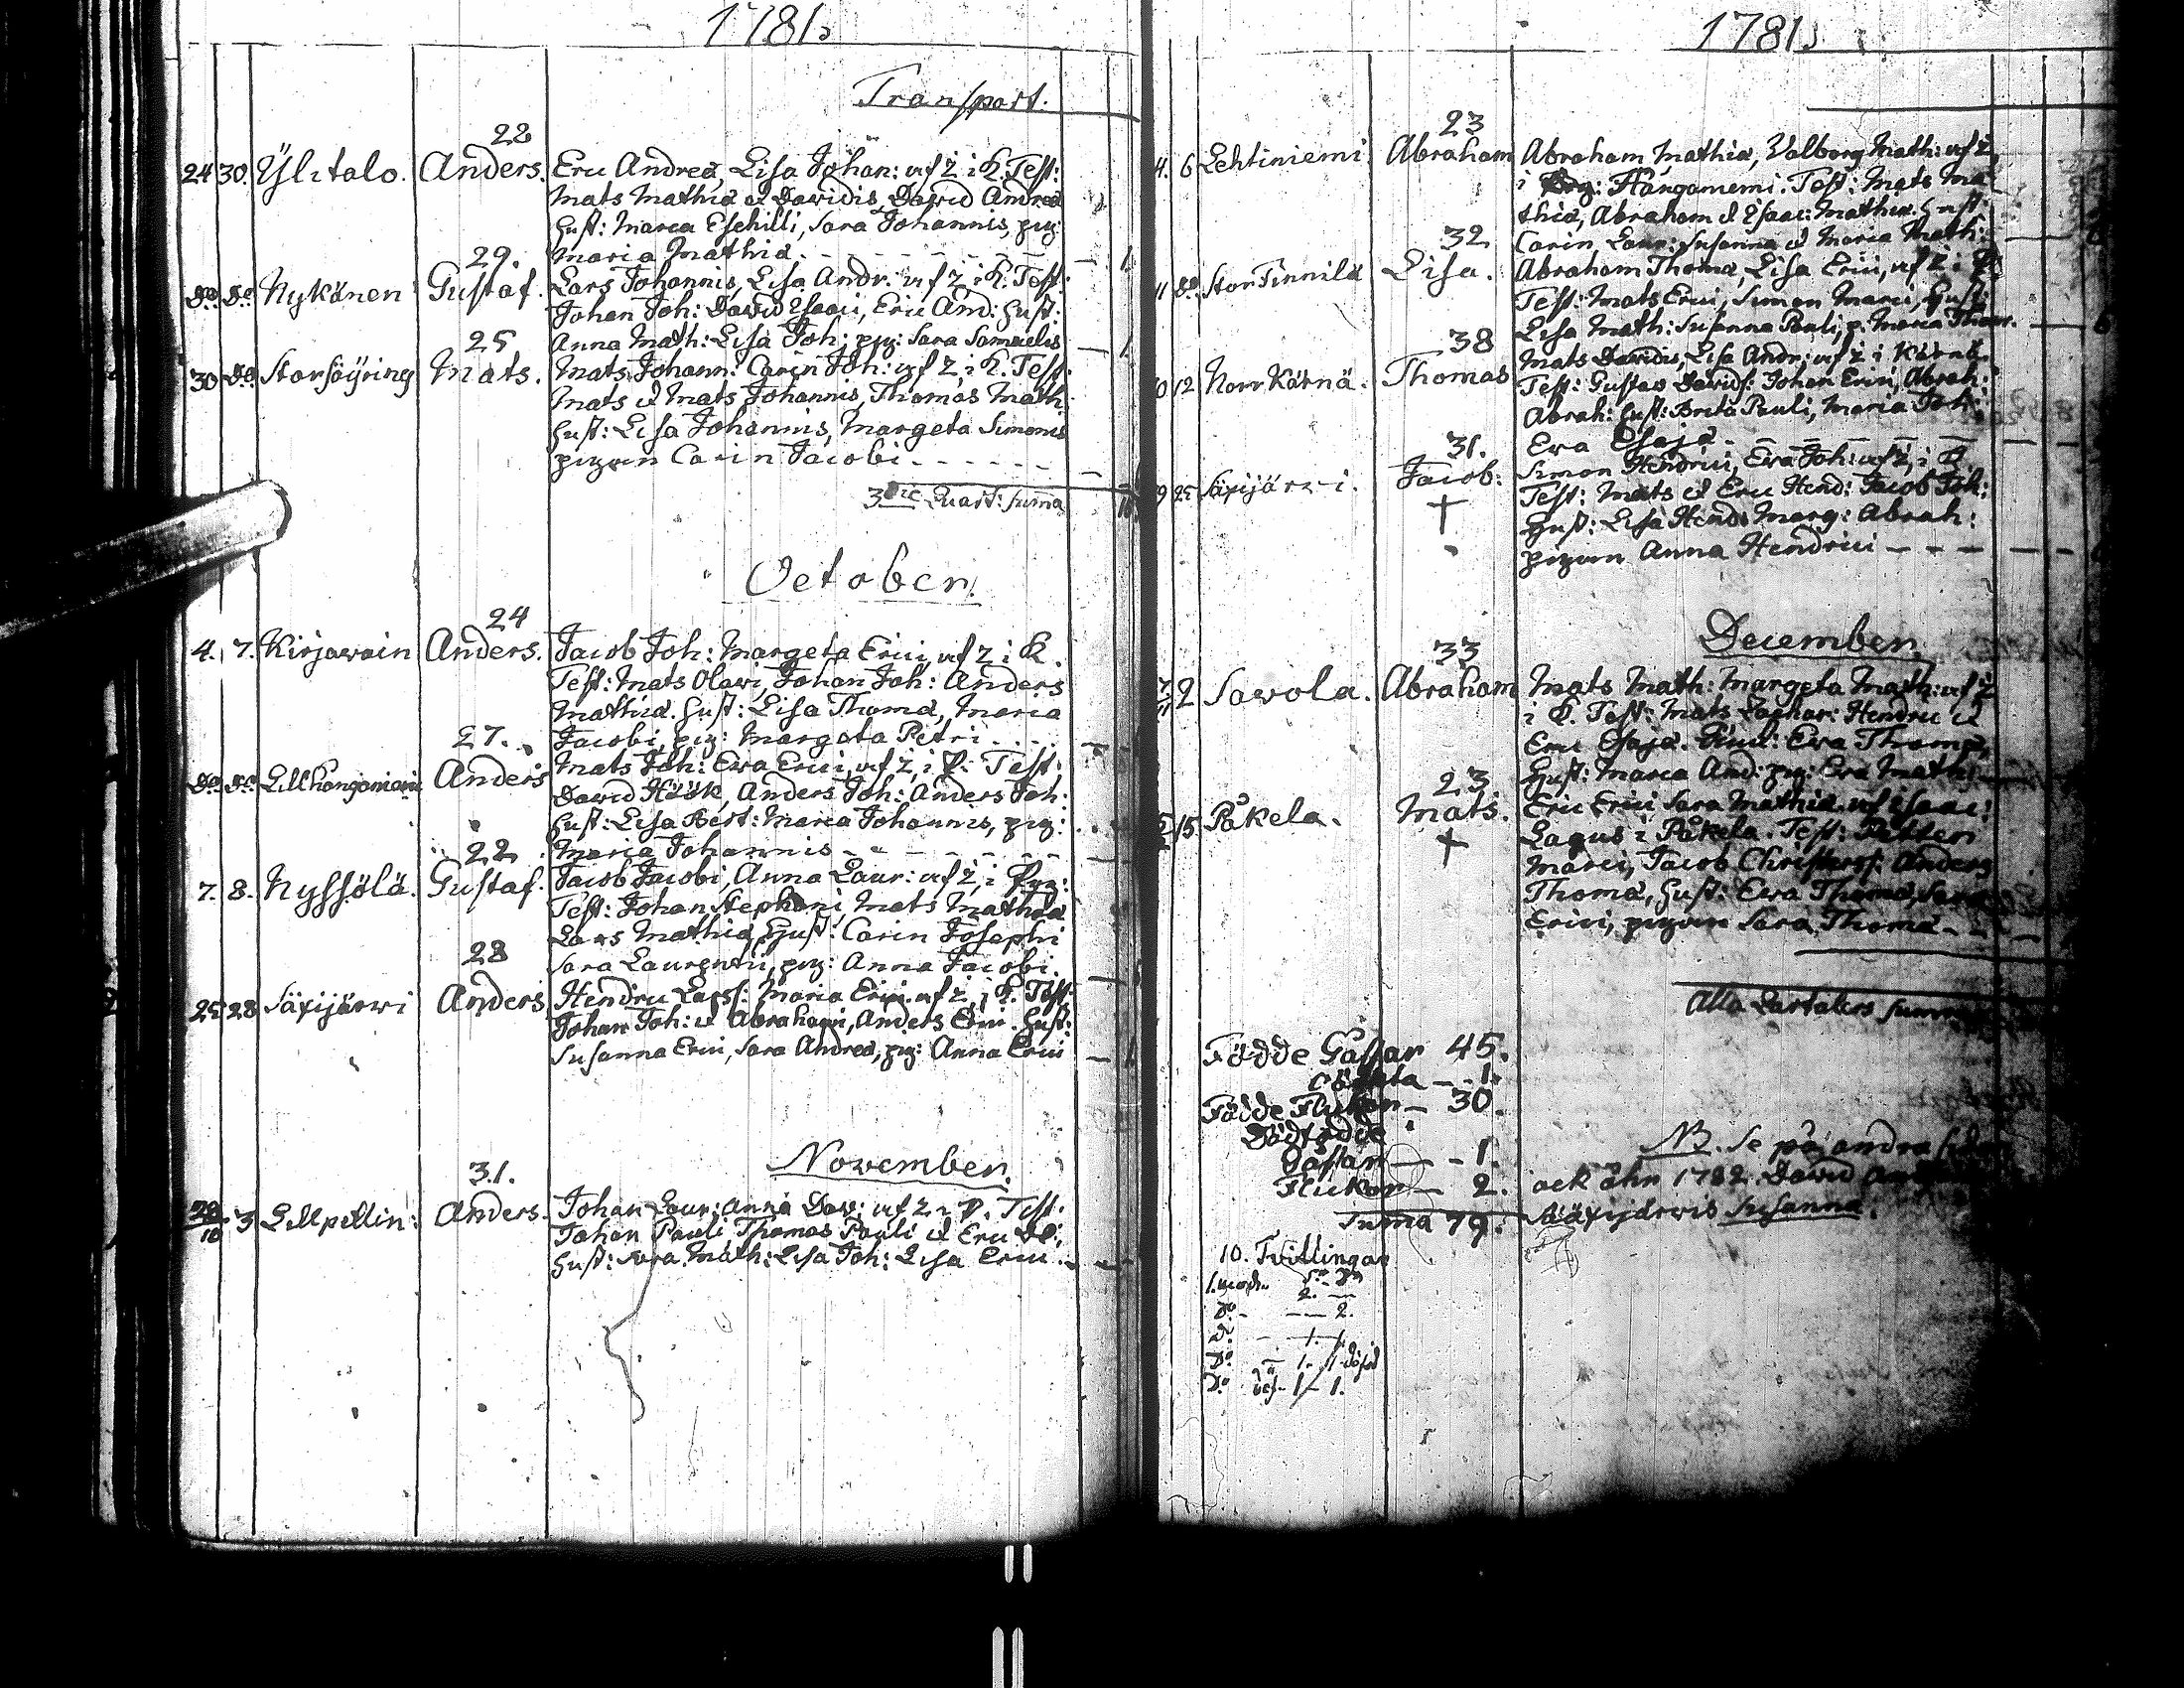 1781.
Transport.
22
24 30. Ÿlitalo. Anders. Eric Andreæ, Lisa Johan: af Z. i K. Test:
Mats Mathiæ et Davidis, David Andreæ
Hust: Maria Eschilli, Sara Johannis, pig:
Maria Mathiæ.
29.
Do. Do. Nykänen Gustaf. Lars Johannis, Lisa Andr: af Z. i K. Test:
Johan Joh: David Esaei, Eric And: Hust:
Anna Math: Lisa Joh: pig: Sara Samuelis
25
30 Do. Storsöyring Mats. Mats Johann: Carin Joh: af Z. i K. Test:
Mats et Mats Johannis, Thomas Math:
Hust: Lisa Johannis, Margeta Simonis
pigan Carin Jacobi
3die Quart: Suma
October.
24
4. 7. Kirjawain Anders. Jacob Joh: Margeta Erici af Z. i K.
Test: Mats Olavi, Johan Joh: Anders
Mathiæ. Hust: Lisa Thomæ, Maria
Jacobi, pig: Margata Petri
27.
Do. Do. Lill Kangoniemi Anders Mats Joh: Ewa Erici, af Z. i P: Test:
David Höök, Anders Joh: Anders Joh:
Hust: Lisa Bert: Maria Johannis, pig:
Maria Johannis
22
7. 8. Nyssölä. Gustaf. Jacob Jacobi, Anna Laur: af Z, i Pyg:
Test: Johan Stephani, Mats Mathiæ
Lars Mathiæ, Hust: Carin Josephi
Sara Laurentii, pig: Anna Jacobi.
28
25 28 Säxijärwi Anders Hendric Larss: Maria Erici. af Z, i K. Test:
Johan Joh: et Abrahami, Anders Erici. Hust:
Susanna Erici, Sara Andreæ, pig: Anna Erici
November.
31.
30/10 3 Lillpellin: Anders. Johan Laur: Anna Dav: af Z. i P. Test:
Johan Pauli, Thomas Pauli et Eric Do:
Hust: Sara Math: Lisa Joh: Lisa Erici.
1781.
23
4. 6 Lehtiniemi Abraham Abraham Mathiæ, Valborg Math: af Z,
i Pyg: Hangoniemi. Test: Mats Ma
thiæ, Abraham et Esaac: Mathiæ. Hust:
Carin Laur: Susanna et Maria Math:
32
Do. Stor Finnilä Lisa. Abraham Thomæ, Lisa Erici, af Z i
Test: Mats Erici, Simon Marci, Hust:
Lisa Math: Susanna Pauli, p: Maria Thom:
38
12 Norr Kärnä. Thomas Mats Davidis, Lisa Andr: af Z i Kärnä.
Test: Gustaw Davids: Johan Erici, Abrah:
Abrah: Hust: Brita Pauli, Maria Joh:
Ewa Esajæ
31.
25 Säxijärwi. Jacob: Simon Hendrici, Ewa Joh: af Z, i P.
† Test: Mats et Eric Hend: Jacob Joh:
Hust: Lisa Hend: Marg: Abrah:
pigan Anna Hendrici
December
33
2 Savola. Abraham Mats Math: Margeta Math: af Z
i P. Test: Mats Zachar: Hendric et
Eric Esajæ. Ewa Thomæ,
Hust: Maria And: pig: Ewa Math:
23
15 Påkela. Mats. Eric Erici Sara Mathiæ. af Isaac:
† Lagus i Påkela. Test: Petter
Marci, Jacob Christerss: Anders
Thomæ, Hust: Ewa Thomæ, Sara
Erici, pigan Sara Thomæ
Alla Qartalers Summa
Födde Gåssar 45.
oäkta 1.
Födde Flickor 30.
Dödfödde
Gåssar 1.
Flickor 2.
Suma 79.
NB. Se på andra sidan
ock åhr 1782. David
Säxijärwis Susanna.
10. Tvillingar
2.
Do. 2.
Do. 1. 1.
Do. 1. 1.
Do. 1 1.